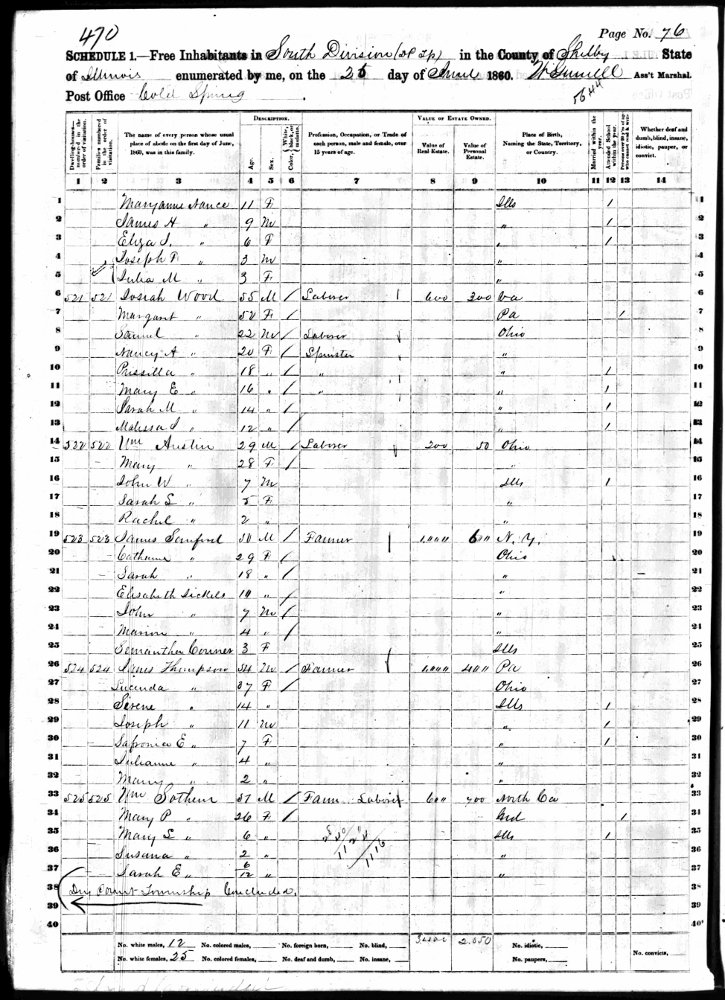 470
Page No. 76
SCHEDULE 1.—Free Inhabitants in South Division in the County of Shelby State
of Illinois enumerated by me, on the 25 day of June 1860. Ass't Marshal.
Post Office Cold Spring
5644
DESCRIPTION. VALUE OF ESTATE OWNED.
Dwelling-houses— numbered in the order of visitation. Families numbered in the order of visitation. The name of every person whose usual place of abode on the first day of June, 1860, was in this family. Age. Sex. Color, White, black, or mulatto. Profession, Occupation, or Trade of each person, male and female, over 15 years of age. Value of Real Estate. Value of Personal Estate. Place of Birth, Naming the State, Territory, or Country. Married within the year. Attended School within the year. Whether deaf and dumb, blind, insane, idiotic, pauper, or convict.
1 2 3 4 5 6 7 8 9 10 11 12 13 14
1 Maryanne Nance 11 F Ills / 1
2 James H " 9 M " / 2
3 Eliza J. " 6 F " / 3
4 Joseph F. " 3 M 4
5 Julia M " 3 F 5
6 521 521 Josiah Wood 55 M / Laborer 600 300 Va 6
7 Margaret " 52 F / Pa / 7
8 Samuel " 22 M / Laborer Ohio 8
9 Nancy A " 20 F / Spinster " 9
10 Prissilla " 18 " / " " / 10
11 Mary E " 16 " / " " / 11
12 Sarah M " 14 " / " / 12
13 Malissa J " 12 " / " / 13
14 522 522 Wm Austin 29 M / Laborer 200 50 Ohio 14
15 Mary " 28 F / " 15
16 John W " 7 M Ills / 16
17 Sarah S " 5 F " 17
18 Rachel " 2 " " 18
19 523 523 James Sanford 50 M / Farmer 1,000 600 N. Y. 19
20 Catharine " 29 F / Ohio 20
21 Sarah " 18 " / " 21
22 Elisabeth Sickels 10 " / " 22
23 John " 7 M / " 23
24 Marion " 4 " / " 24
25 Semantha Conner 3 F Ills 25
26 524 524 James Thompson 34 M / Farmer 1,000 400 Pa 26
27 Lucinda " 37 F / Ohio 27
28 Serene " 14 " Ills / 28
29 Joseph " 11 M " / 29
30 Safronia E " 7 F " / 30
31 Julianne " 4 " " 31
32 Mary " 2 " " 32
33 525 525 Wm Sothern 37 M / Farm Laborer 600 700 North Ca 33
34 Mary P " 26 F / Ind / 34
35 Mary S " 6 " Ills / 35
36 Susana " 2 " " 36
37 Sarah E " 6/12 " " 37
38 Dry Point Township Concluded. 38
39 39
40 40
No. white males, 12 No. colored males, No. foreign born, No. blind, 2.050 No. idiotic, No. convicts,
No. white females, 25 No. colored females, No. deaf and dumb, No. insane, No. paupers,